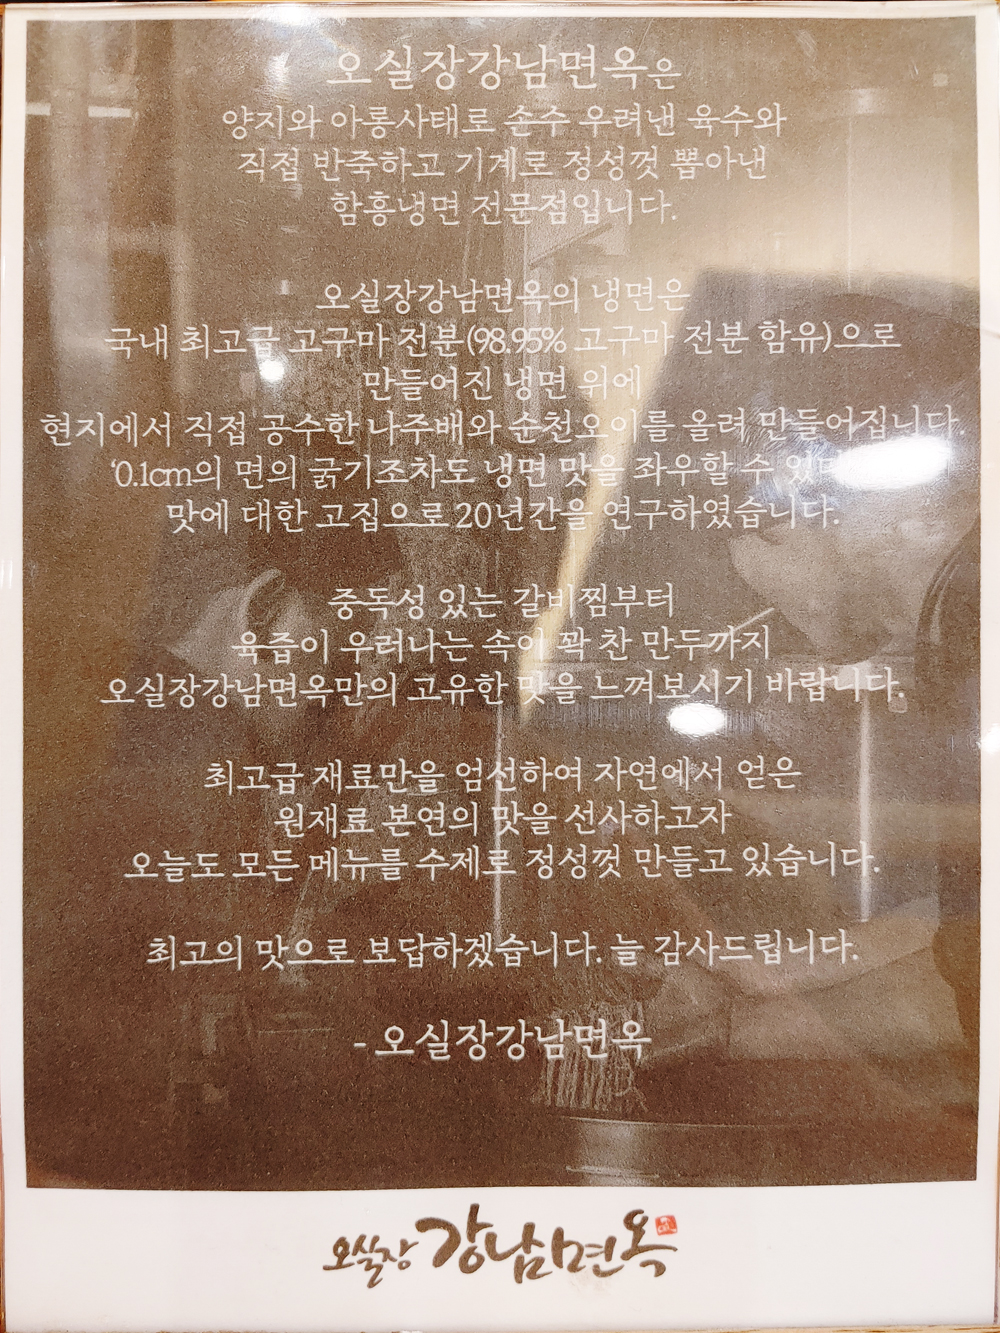 오실장강남면옥은
양지와 아롱사태로 손수 우려낸 육수와
직접 반죽하고 기계로 정성껏 뽑아낸
함흥냉면 전문점입니다.
오실장강남면옥의 냉면은
국내 최고급 고구마 전분(98.95% 고구마 전분 함유)으로
만들어진 냉면 위에
현지에서 직접 공수한 나주배와 순천오이를 올려 만들어집니다.
‘0.1cm의 면의 굵기조차도 냉면 맛을 좌우할 수 있
맛에 대한 고집으로 20년간을 연구하였습니다.
중독성 있는 갈비찜부터
육즙이 우러나는 속이 꽉 찬 만두까지
오실장강남면옥만의 고유한 맛을 느껴보시기 바랍니다.
최고급 재료만을 엄선하여 자연에서 얻은
원재료 본연의 맛을 선사하고자
오늘도 모든 메뉴를 수제로 정성껏 만들고 있습니다.
최고의 맛으로 보답하겠습니다. 늘 감사드립니다.
- 오실장강남면옥
오실장 강남면옥